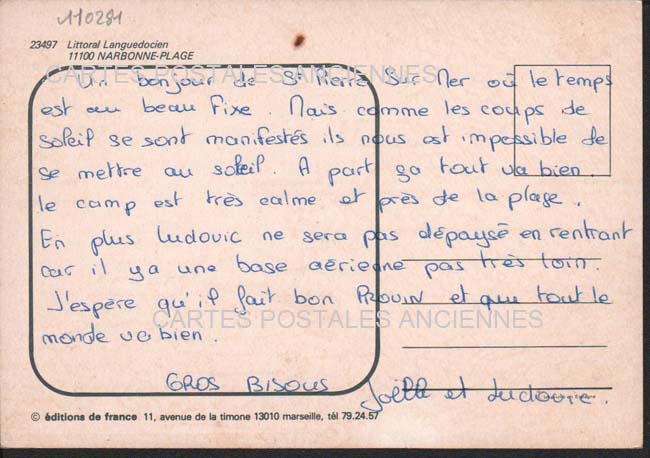 110281
23497 Littoral Languedocien
11100 NARBONNE-PLAGE
CARTES POSTALES ANCIENNES
Un bonjour de St Pierre Sur Mer où le temps
est au beau fixe. Mais comme les coups de
soleil se sont manifestés ils nous est impossible de
se mettre au soleil. A part ça tout va bien.
le camp est très calme et près de la plage.
En plus Ludovic ne sera pas dépaysé en rentrant
car il ya une base aérienne pas très loin.
J'espère qu'il fait bon PROUIN et que tout le
CARTES POSTALES ANCIENNES
monde va bien.
GROS BISOUS Joëlle et Ludovic.
© éditions de france 11, avenue de la timone 13010 marseille, tél 79.24.57